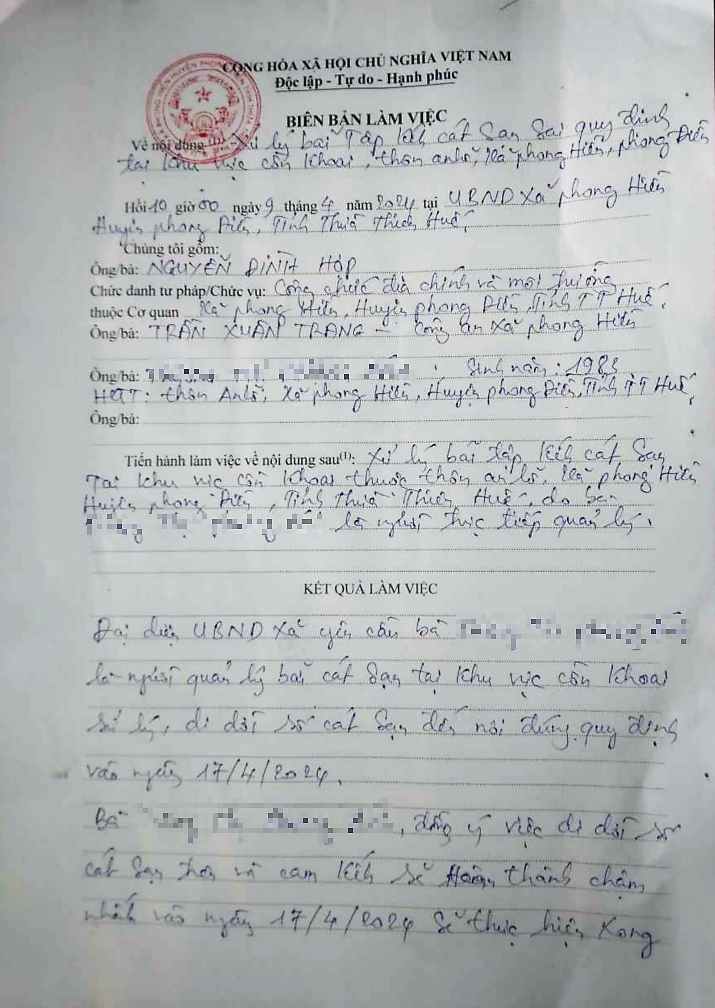 CỘNG HÒA XÃ HỘI CHỦ NGHĨA VIỆT NAM
Độc lập - Tự do - Hạnh phúc
BIÊN BẢN LÀM VIỆC
Về nội dung (1): Xử lý bãi Tập kết cát Sạn Sai quy định
tại khu vực cồn Khoai, thôn an lỗ, Xã phong Hiền, phong Điền
Hồi 10 giờ 00 ngày 9 tháng 4 năm 2024 tại UBND Xã phong Hiền
Huyện phong Điền, Tỉnh Thừa Thiên Huế.
Chúng tôi gồm:
Ông/bà: NGUYỄN ĐÌNH HỢP
Chức danh tư pháp/Chức vụ: Công chức địa chính và môi trường
thuộc Cơ quan Xã phong Hiền, Huyện phong Điền, Tỉnh TT Huế.
Ông/bà: TRẦN XUÂN TRANG - Công an Xã phong Hiền
Ông/bà: Sinh năm: 1983
HKTT: thôn An lỗ, Xã phong Hiền, Huyện phong Điền, Tỉnh TT Huế,
Ông/bà:
Tiến hành làm việc về nội dung sau(1): Xử lý bãi tập kết cát Sạn
Tại khu vực cồn Khoai thuộc thôn an lỗ, Xã phong Hiền
Huyện phong Điền, Tỉnh Thừa Thiên Huế, do bà
là người trực tiếp quản lý.
KẾT QUẢ LÀM VIỆC
Đại diện UBND Xã yêu cầu bà
là người quản lý bãi cát Sạn tại khu vực cồn Khoai
xử lý, di dời số cát Sạn đến nơi đúng quy định
vào ngày 17/4/2024.
Bà , đồng ý việc di dời số
cát Sạn trên và cam kết sẽ Hoàn thành chậm
nhất vào ngày 17/4/2024 Sẽ thực hiện Xong